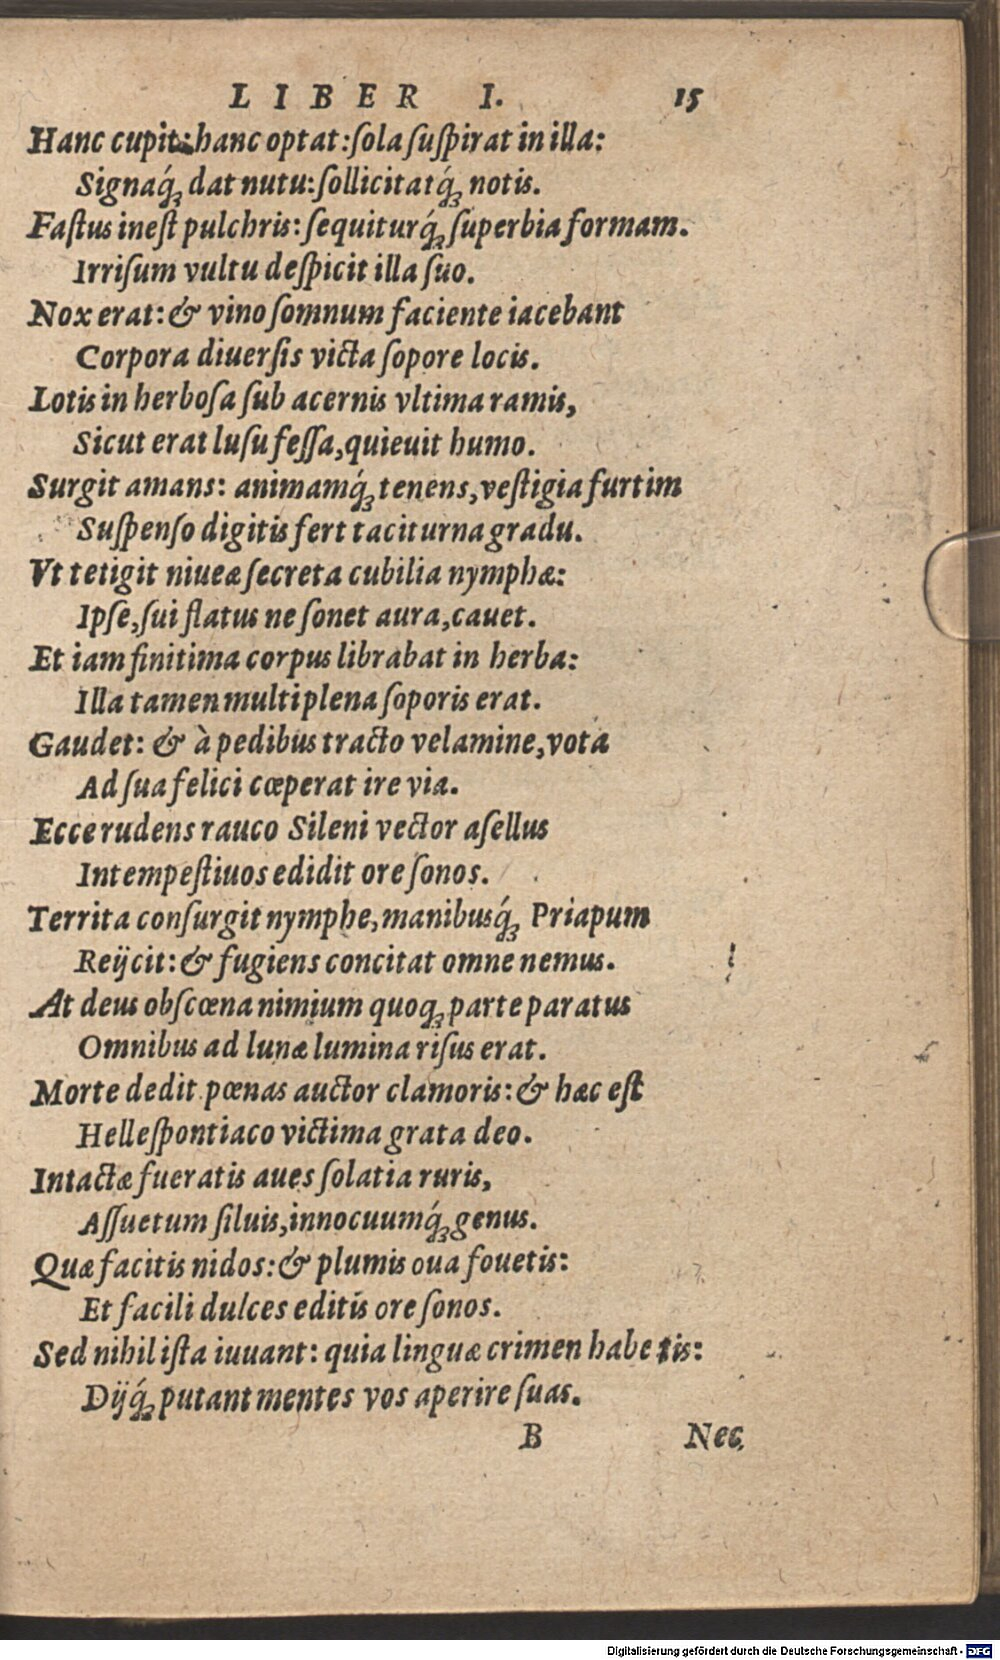 LIBER I. 15
Hanc cupit: hanc optat: ſola ſuſpirat in illa:
Signaq́ꝫ dat nutu: ſollicitatq́ꝫ notis.
Faſtus ineſt pulchris: ſequiturq́ꝫ ſuperbia formam.
Irriſum vultu deſpicit illa ſuo.
Nox erat: & vino ſomnum faciente iacebant
Corpora diuerſis victa ſopore locis.
Lotis in herboſa ſub acernis vltima ramis,
Sicut erat luſu feſſa, quieuit humo.
Surgit amans: animamq́ꝫ tenens, veſtigia furtim
Suſpenſo digitis fert taciturna gradu.
Vt tetigit niueæ ſecreta cubilia nymphæ:
Ipſe, ſui flatus ne ſonet aura, cauet.
Et iam finitima corpus librabat in herba:
Illa tamen multi plena ſoporis erat.
Gaudet: & à pedibus tracto velamine, vota
Ad ſua felici cœperat ire via.
Ecce rudens rauco Sileni vector aſellus
Intempeſtiuos edidit ore ſonos.
Territa conſurgit nymphe, manibusq́ꝫ Priapum
Reijcit: & fugiens concitat omne nemus.
At deus obſcœna nimium quoqꝫ parte paratus
Omnibus ad lunæ lumina riſus erat.
Morte dedit pœnas auctor clamoris: & hæc eſt
Helleſpontiaco victima grata deo.
Intactæ fueratis aues ſolatia ruris,
Aſſuetum ſiluis, innocuumq́ꝫ genus.
Quæ facitis nidos: & plumis oua fouetis:
Et facili dulces editis ore ſonos.
Sed nihil iſta iuuant: quia linguæ crimen habetis:
Dijq́ꝫ putant mentes vos aperire ſuas.
B Nec
Digitalisierung gefördert durch die Deutsche Forschungsgemeinschaft - DFG